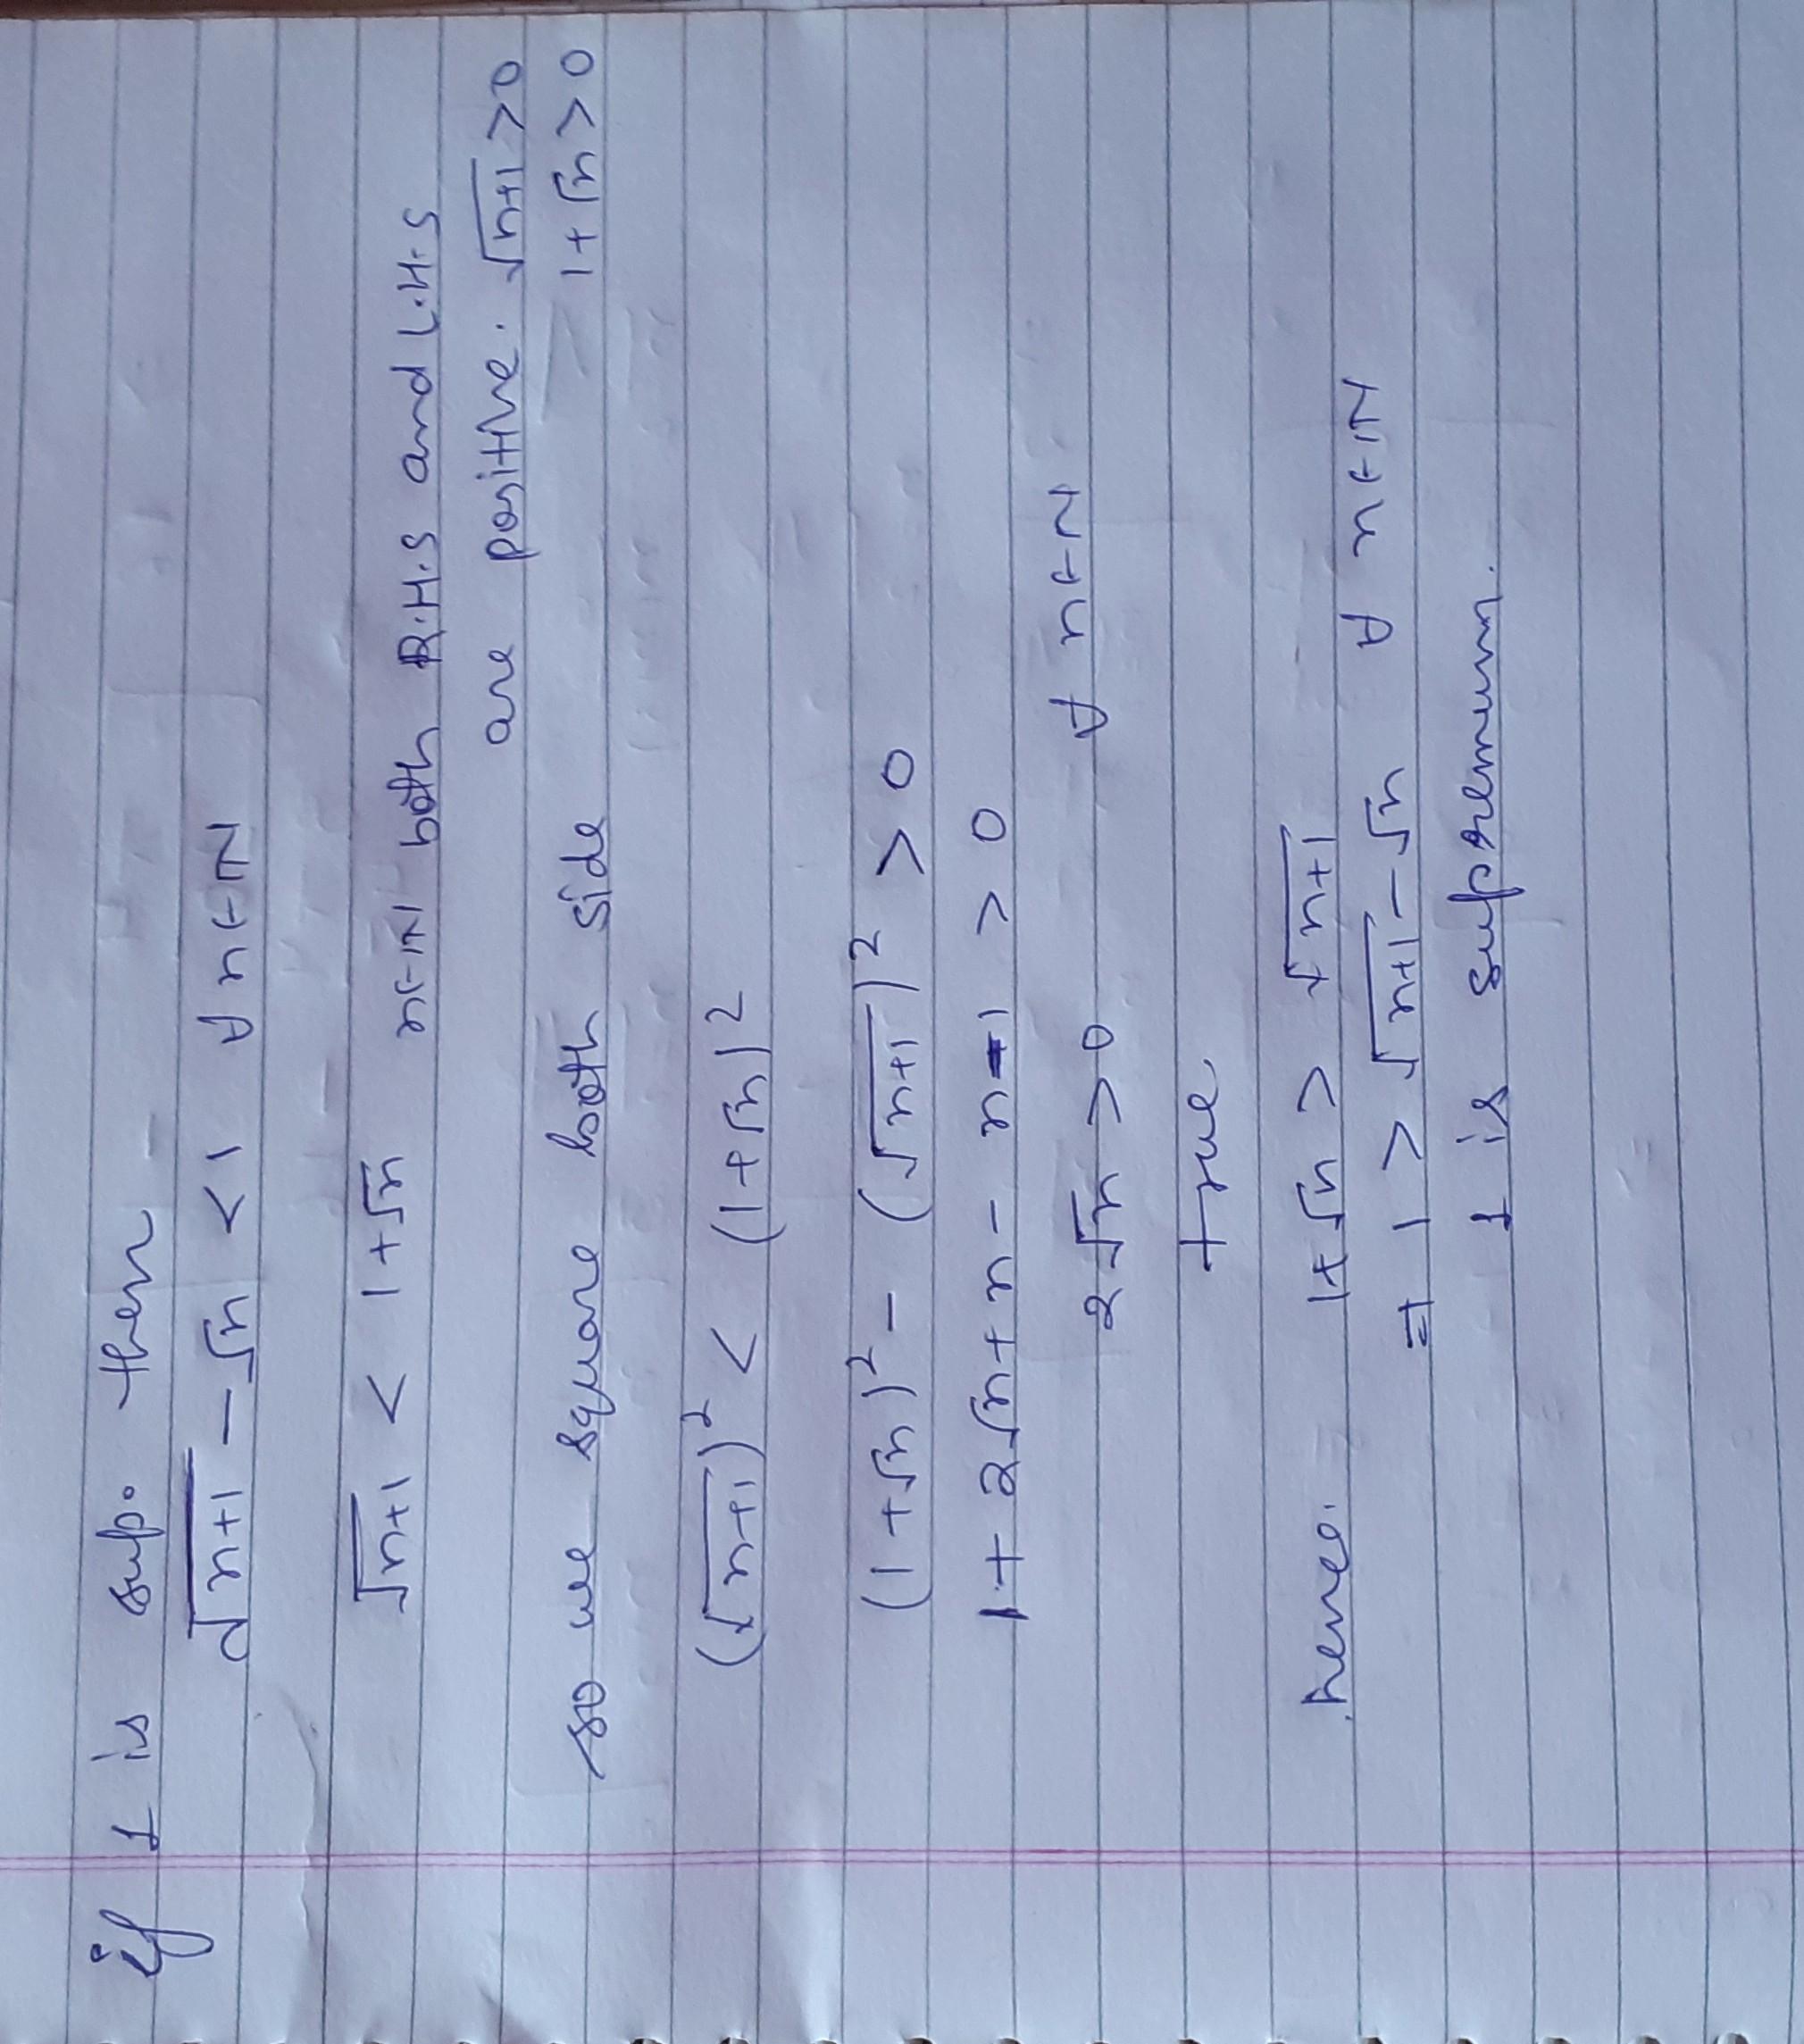 if 1 is sup. then
√n+1 - √n < 1 ∀ n∈IN
√n+1 < 1+√n n∈IN both R.H.S and L.H.S
are positive. √n+1 > 0
1+√n > 0
so we square both side
(√n+1)² < (1+√n)²
(1+√n)² - (√n+1)² > 0
1+2√n+n-n-1 > 0
2√n > 0 ∀ n∈N
true
hence. 1+√n > √n+1
⇒ 1 > √n+1 - √n ∀ n∈IN
1 is supremum.